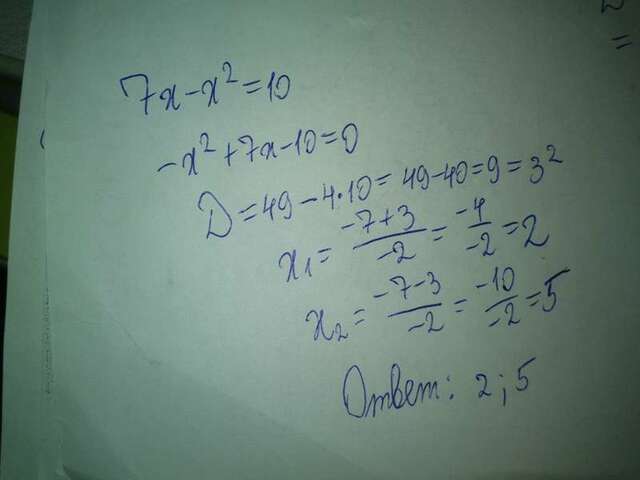 7x-x²=10
-x²+7x-10=0
D=49-4·10=49-40=9=3²
x₁=\frac{-7+3}{-2}=\frac{-4}{-2}=2
x₂=\frac{-7-3}{-2}=\frac{-10}{-2}=5
Ответ: 2;5